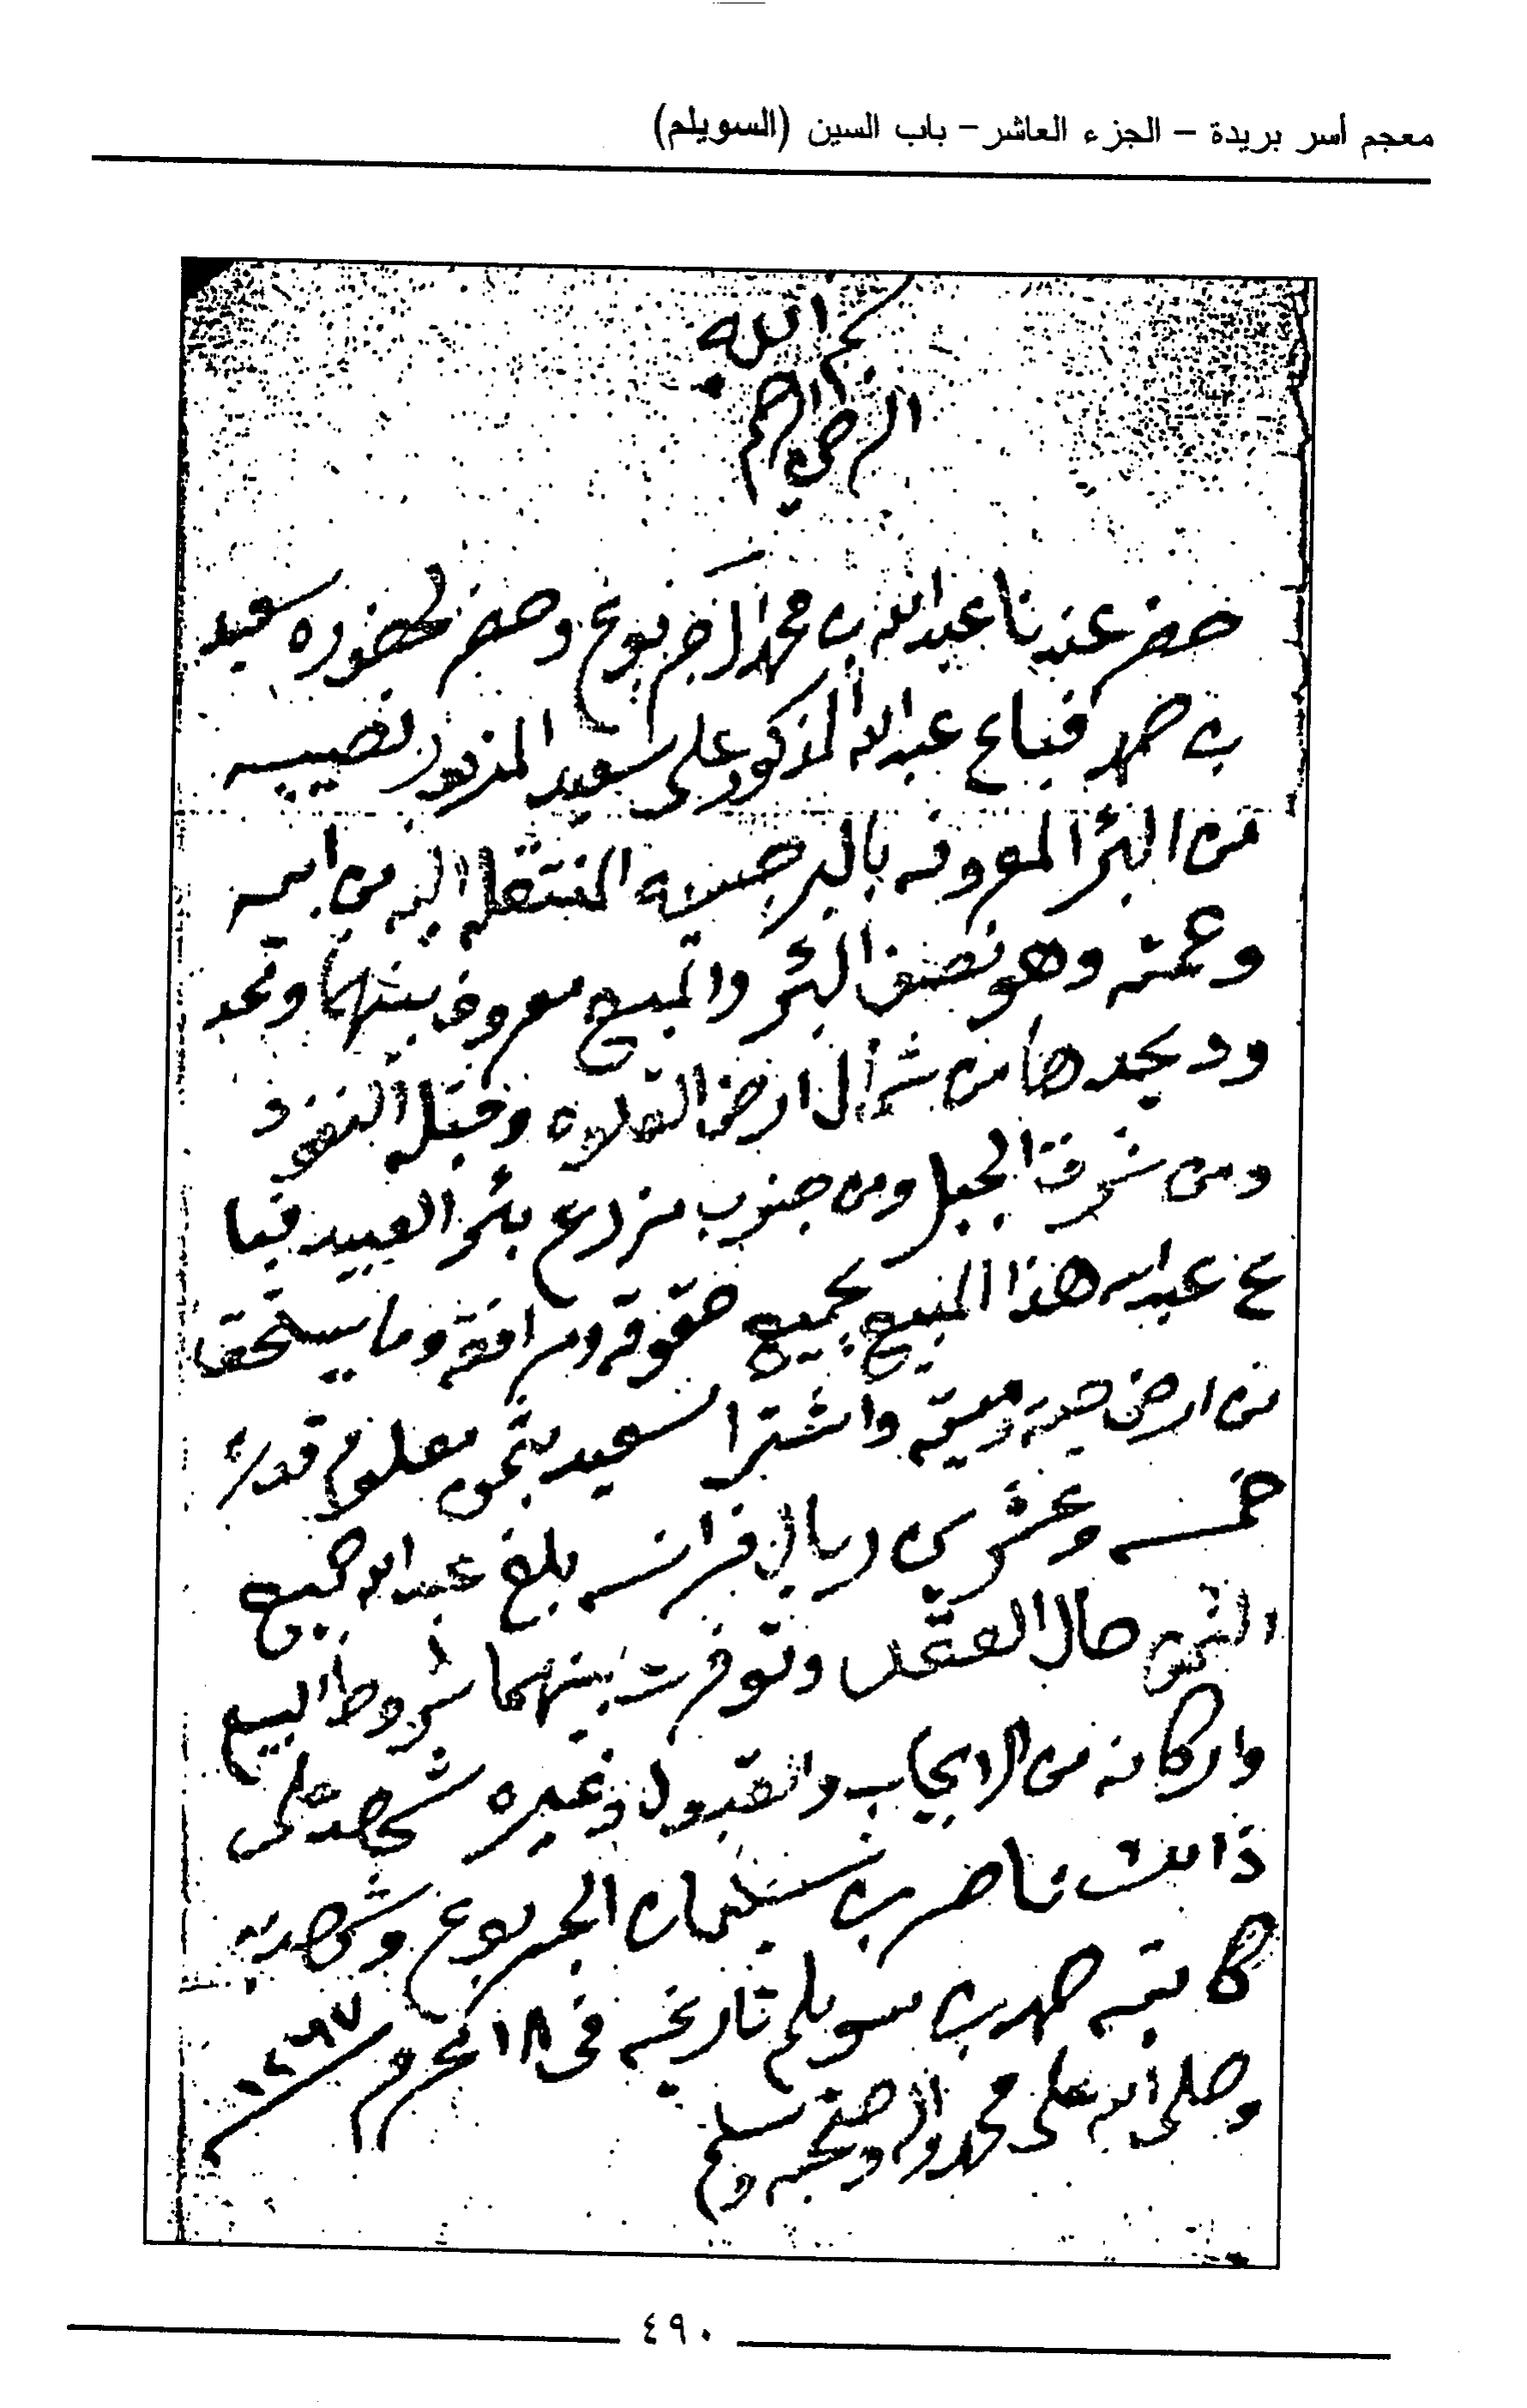 معجم أسر بريدة – الجزء العاشر – باب السين (السويلم)
بسم الله
الرحمن الرحيم
حضر عندنا عبدالله بن محمد وحضر لحضوره سعيد
بن حمد فباع عبدالله المذكور على سعيد المزبور نصيبه
من البئر المعروفه المنتقله اليه من ابيه
وعمته وهو نصف البئر والمبيع معروف بينهما وتحد
ود يحدها من شمال ارض وقبله النفود
ومن شرق الجبل ومن جنوب مزارع بئر العبيد فبا
ع عبدالله هذا المبيع بجميع حقوقه ومرافقه وما يستحق
من ارض حيه وميته واشترا سعيد بثمن معلوم قدره
خمسه وعشرين ريال فرانسه بلغ عبدالله جميع
الثمن حال العقد وتوفرت بينهما شروط البيع
واركانه من الايجاب والقبول وغيره شهد على
ذالك ناصر بن سليمان الجربوع وشهد به
كاتبه حمد بن سويلم تاريخه في ١٨ محرم
وصلى الله على محمد واله وصحبه وسلم
٤٩٠